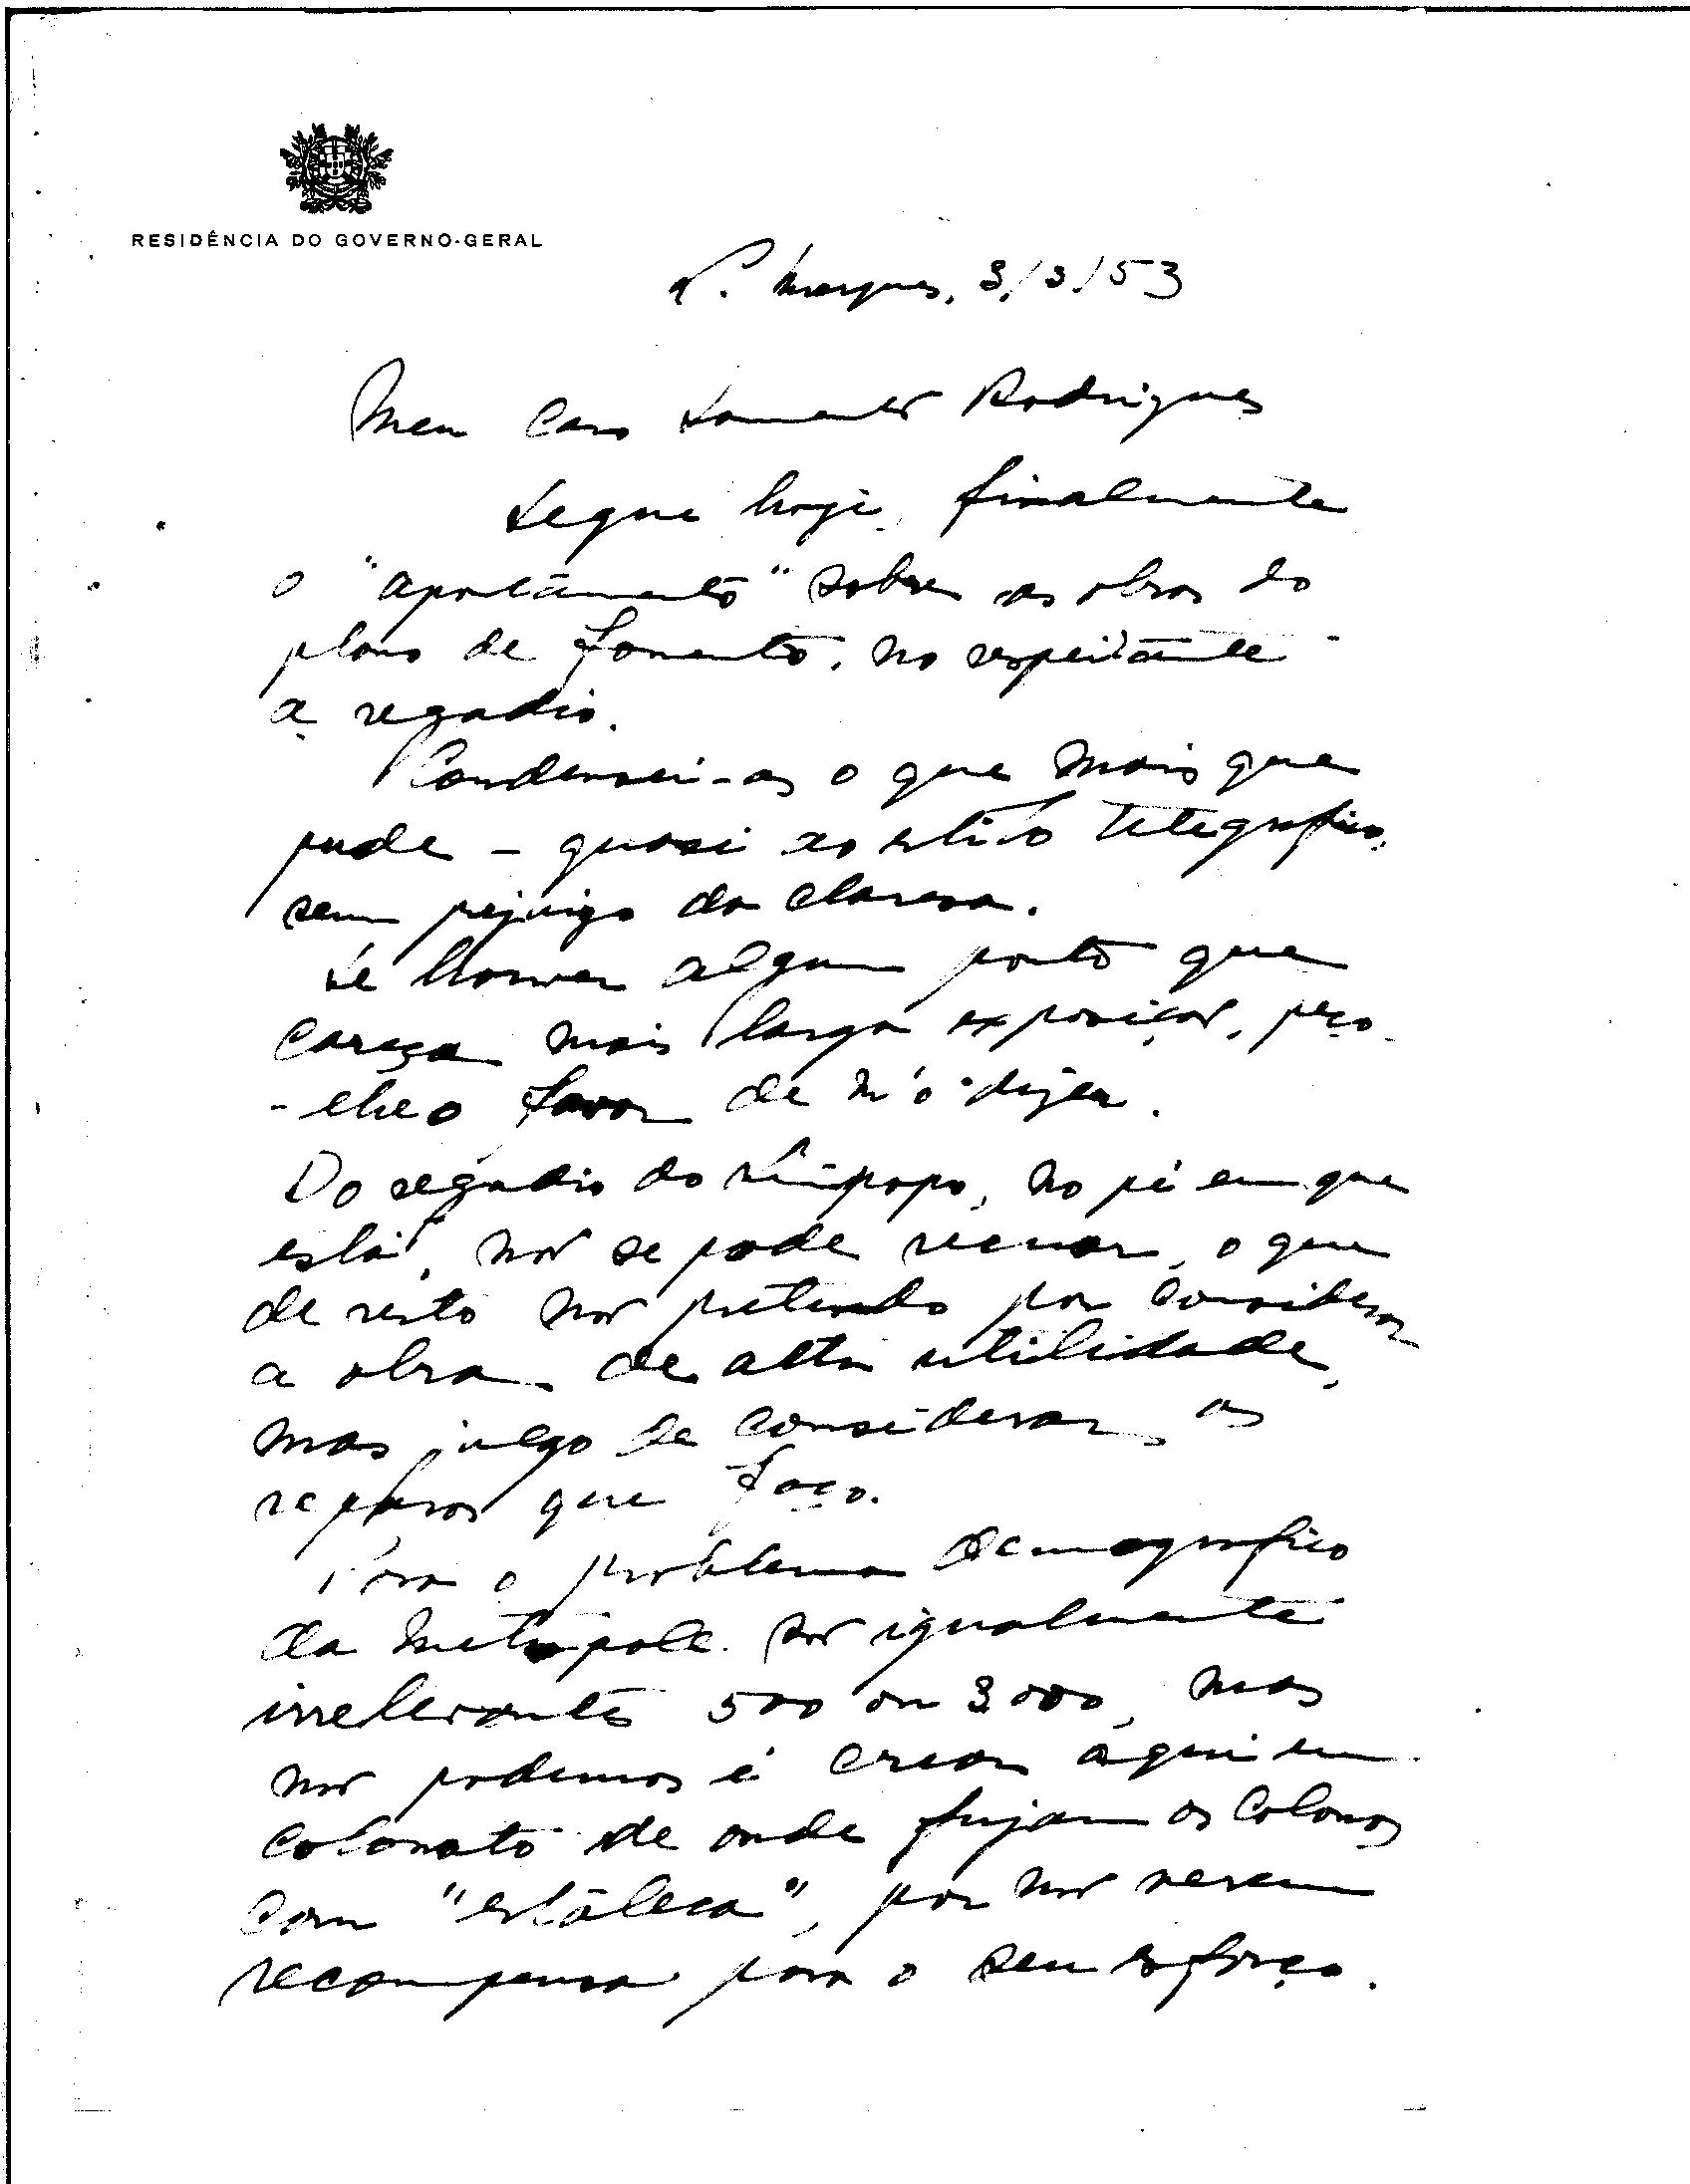 RESIDÊNCIA DO GOVERNO-GERAL
L. Marques, 3/3/53
Meu caro Sarmento Rodrigues
Segue hoje, finalmente
o "apontamento" sobre as obras do
plano de fomento, no respeitante
a regadio.
Condensei-as o que mais que
pude – quasi ao estilo telegrafico,
sem prejuizo da claresa.
Se houver algum ponto que
careça mais larga exposição, peço-
-lhe o favor de m'o dizer.
Do regadio do Limpopo, no pé em que
está, não se pode recuar, o que
de resto não pretendo por considerar
a obra de alta utilidade,
mas julgo de considerar os
reparos que faço.
Para o problema demografico
da Metropole são igualmente
irrelevantes 500 ou 3000, mas
não podemos é crear aqui um
colonato de onde fujam os colonos
com "estaleca", por não verem
recompensa para o seu esforço.